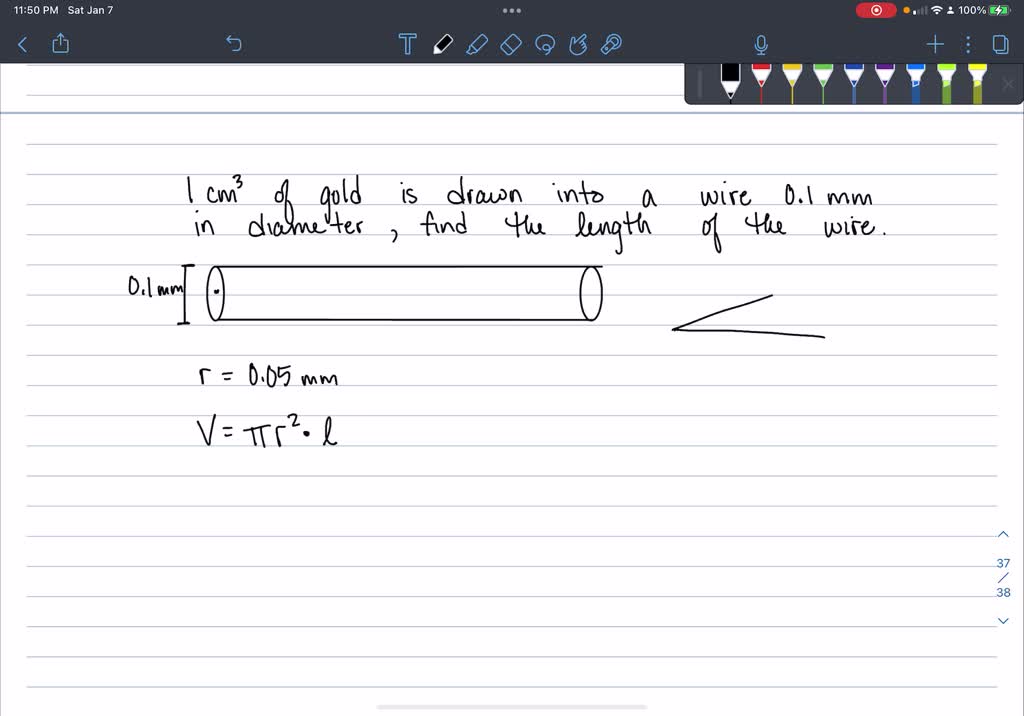 11:50 PM Sat Jan 7
100%
1 cm³ of gold is drawn into a wire 0.1 mm
in diameter, find the length of the wire.
0.1 mm
r = 0.05 mm
V = πr² · l
37
/
38